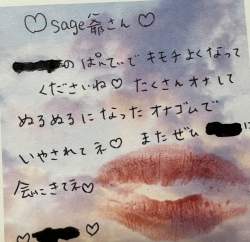 ♡sage爺さん♡
のぱんてぃでキモチよくなって
くださいね♡ たくさんオナして
ぬるぬるになったオナゴムで
いやされてネ♡ またぜひ に
会いにきてネ♡
♡